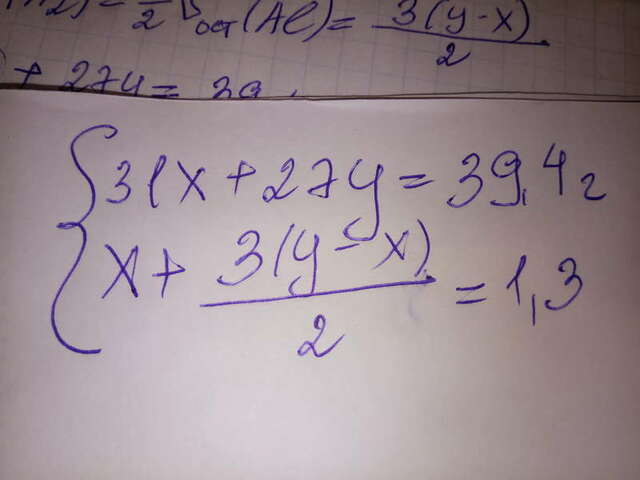 ост(Al) = 3(y-x)/2
+ 27y = 39
{ 31x + 27y = 39,4 г
x + 3(y-x)/2 = 1,3